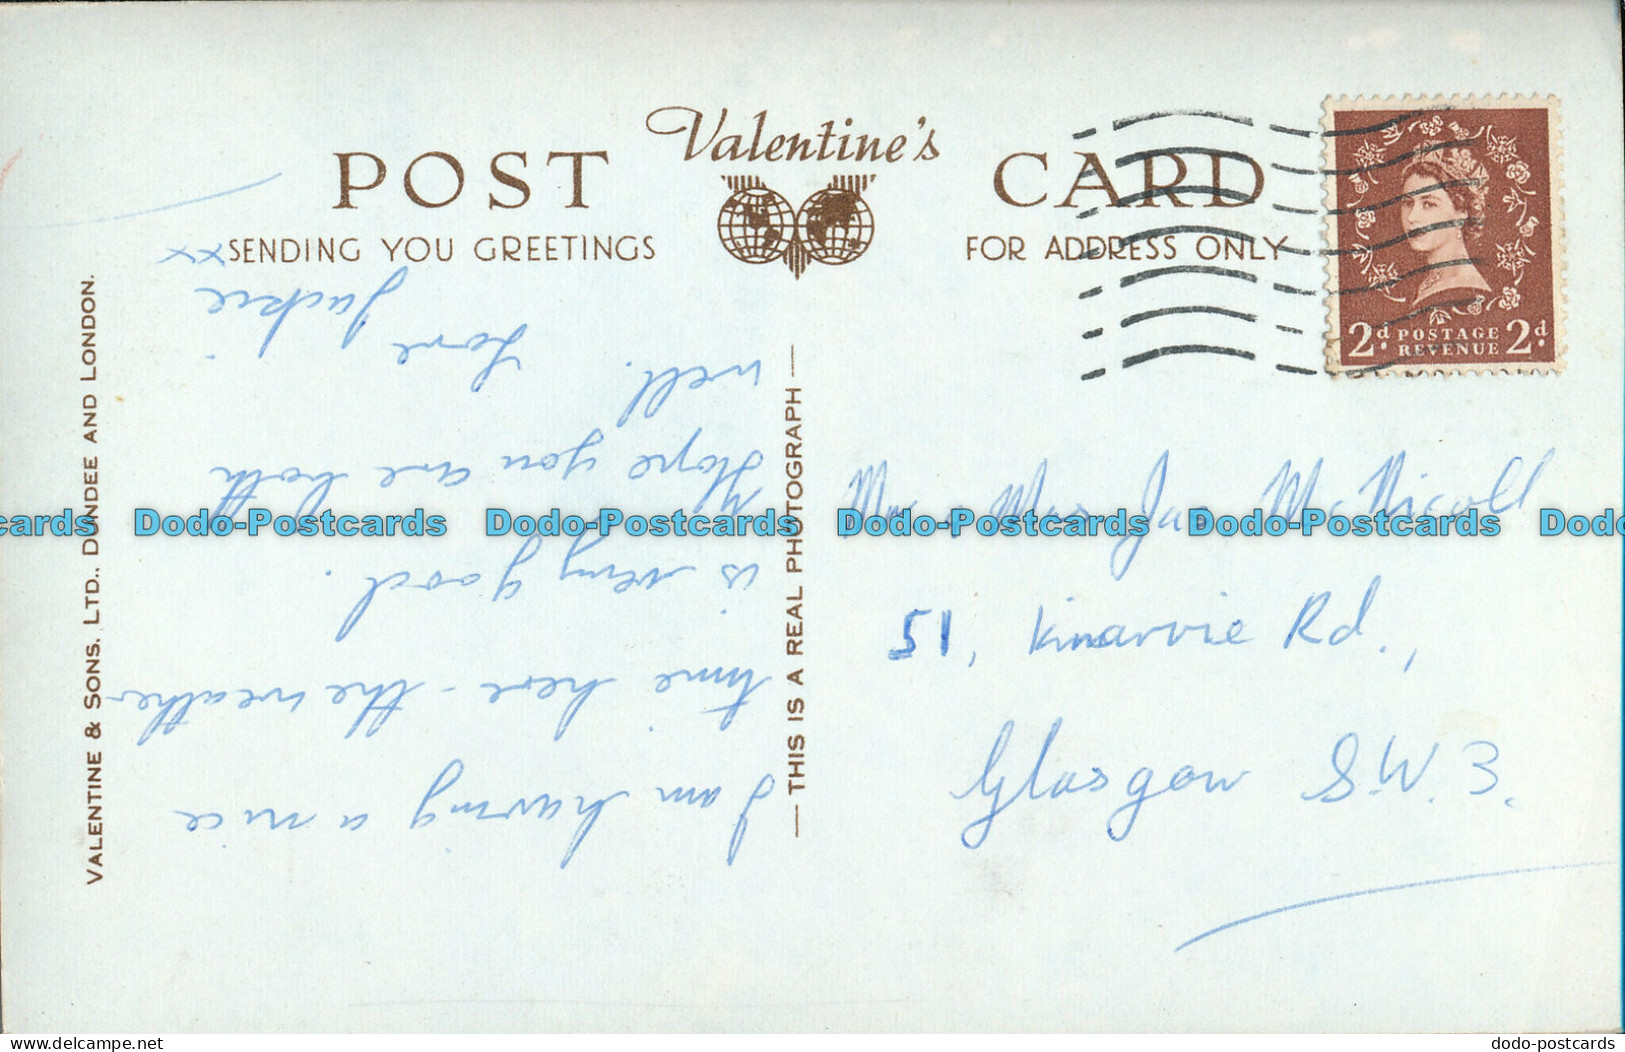 POST Valentine's CARD
SENDING YOU GREETINGS
FOR ADDRESS ONLY
2d POSTAGE REVENUE 2d
VALENTINE & SONS. LTD., DUNDEE AND LONDON.
THIS IS A REAL PHOTOGRAPH
I am having a nice
time here - the weather
is very good.
Hope you are both
well.
Love Jackie
xxxx
Mr & Mrs Jas McNicoll
51, Kinarvie Rd.,
Glasgow S.W.3.
Dodo-Postcards Dodo-Postcards Dodo-Postcards Dodo-Postcards
dodo-postcards